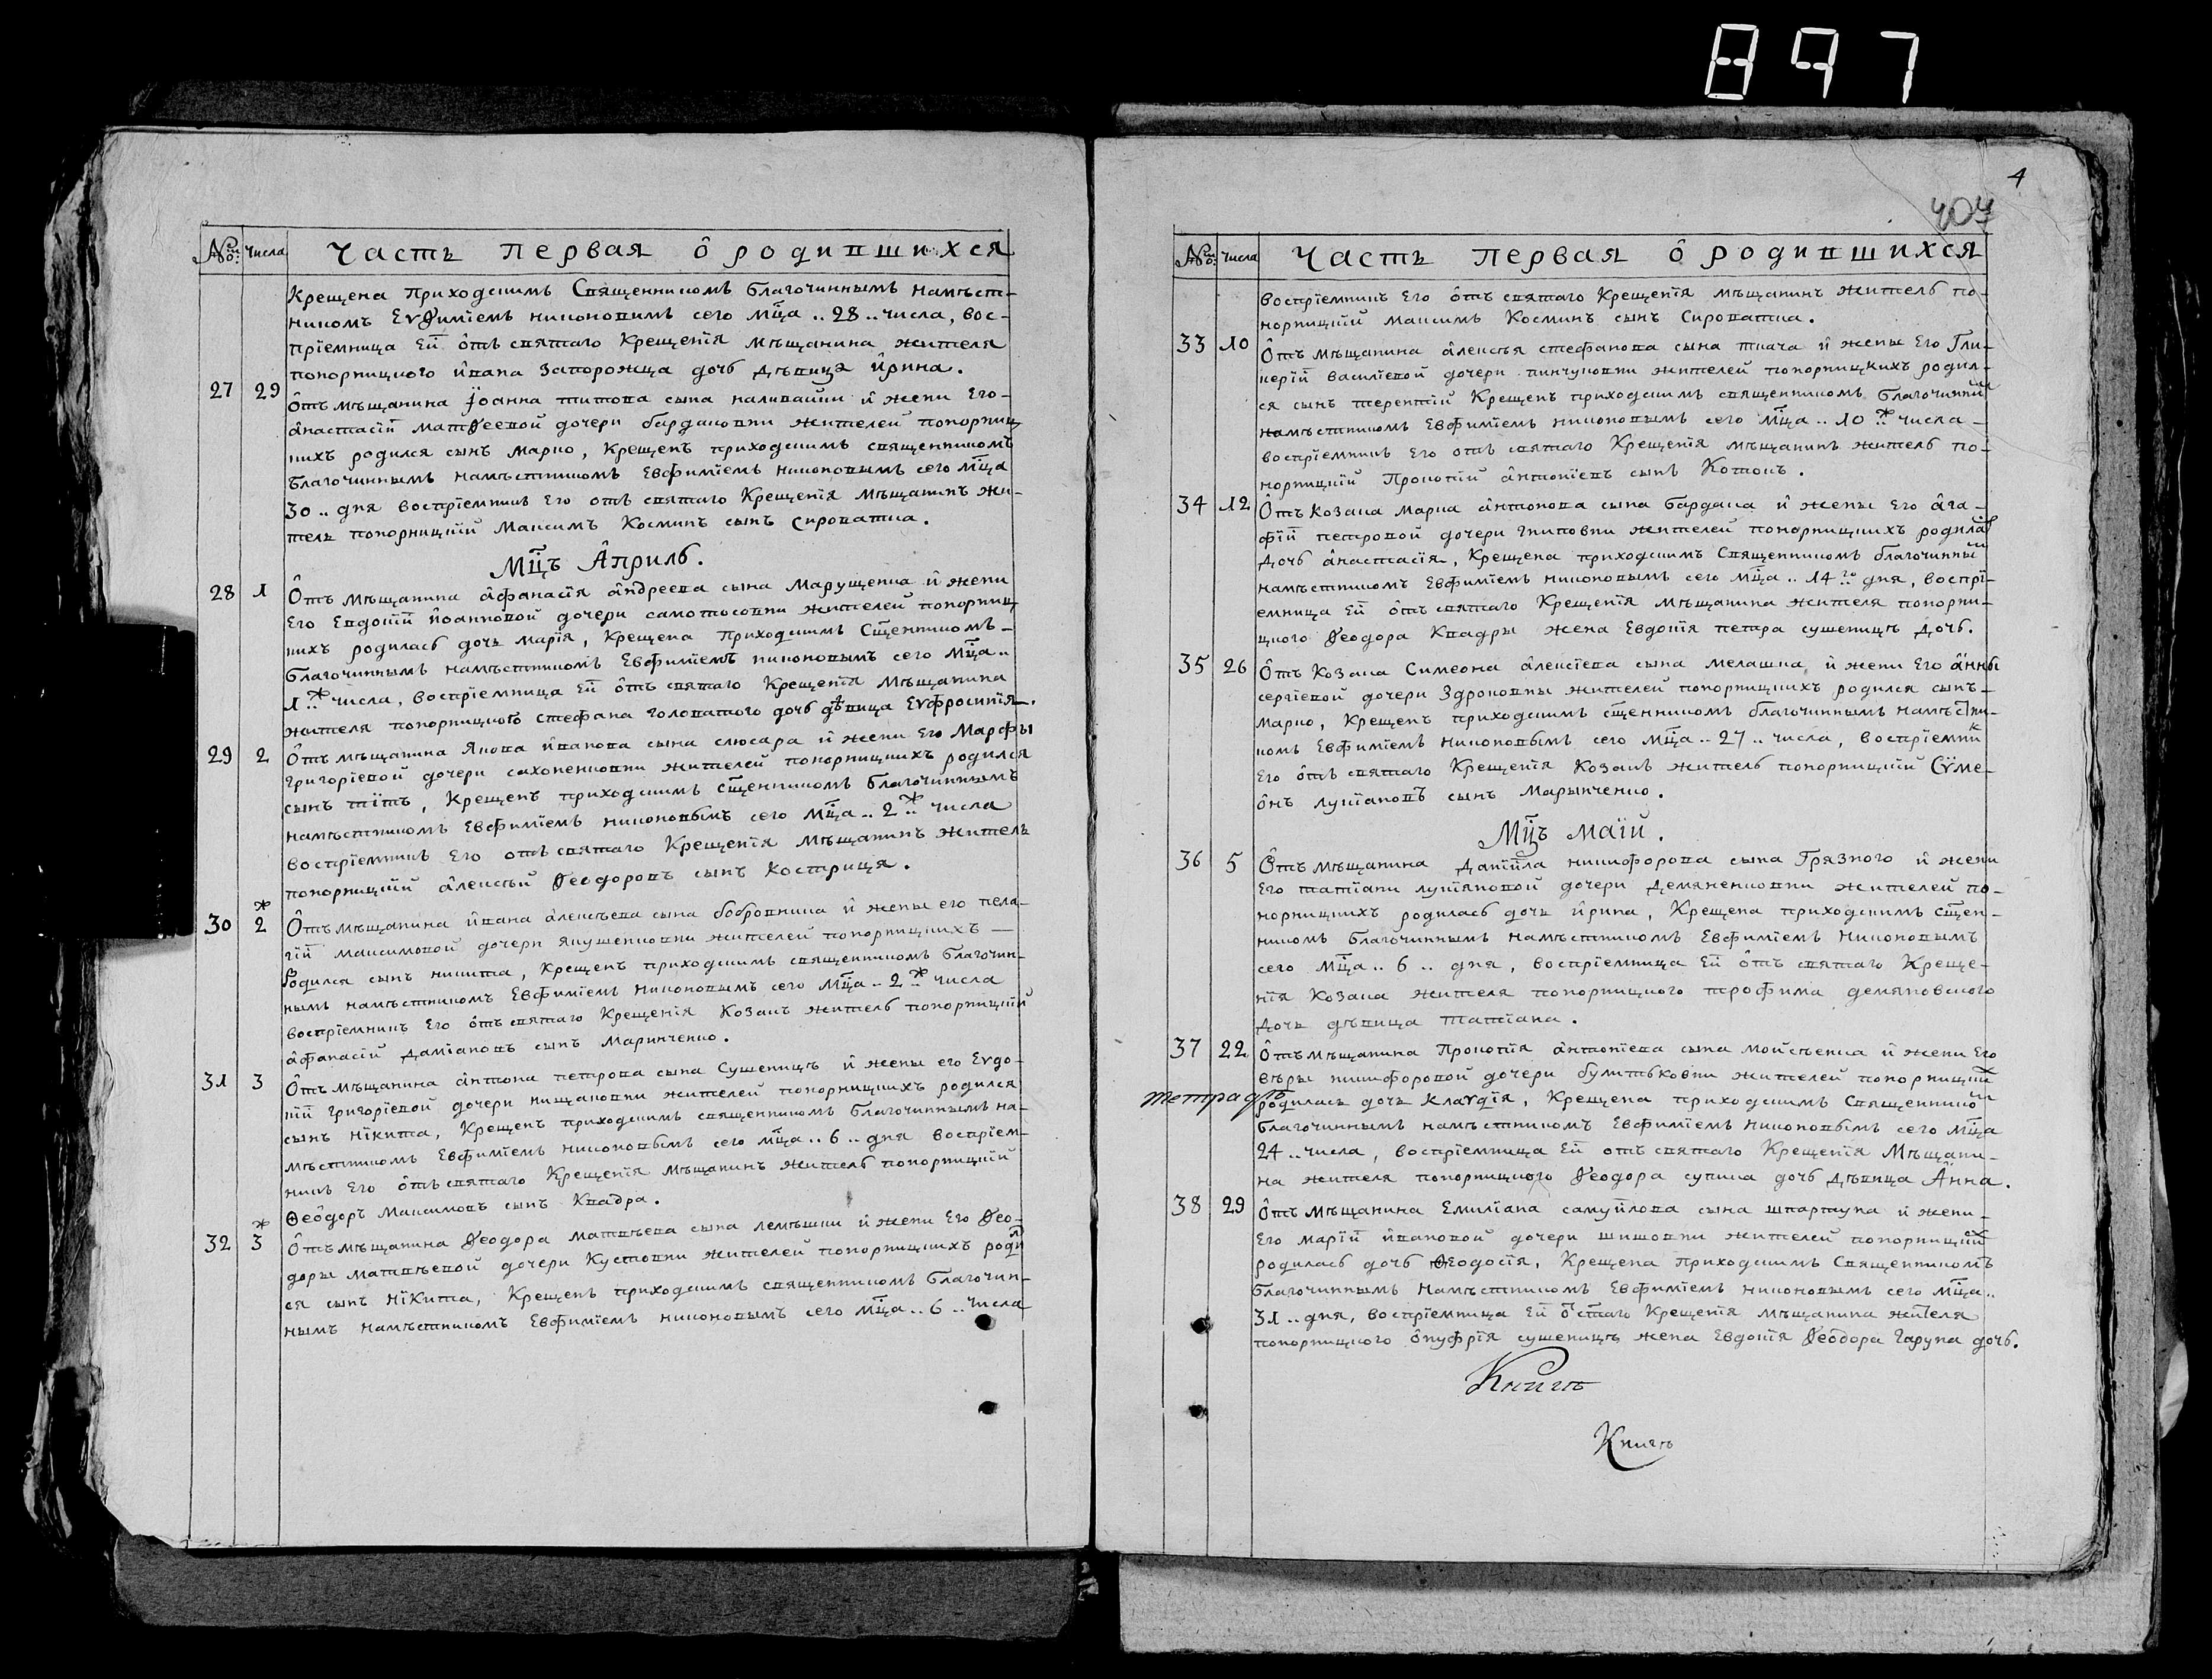 897
№ Числа Часть первая о родившихся
Крещена приходскимъ Священникомъ благочиннымъ намѣст-
никомъ Евфимїемъ никоновымъ сего мца .. 28 .. числа, вос-
прїемница Ей отъ святаго Крещенїя мѣщанина жителя
понорницкого ивана Запорожца дочь дѣвица ирина.
27 29 Отъ мѣщанина Іоанна титова сына наливайки и жени Его-
анастасїи матфеевой дочери бардаковни жителей понорниц
кихъ родился сынъ марко, Крещенъ приходскимъ священникомъ
благочиннымъ намѣстникомъ Евфимїемъ никоновымъ сего мца
30 .. дня воспрїемникъ Его отъ святаго Крещенїя мѣщанинъ жи-
тель понорницкїй Максимъ Косминъ сынъ сироватка.
Мцъ Априль.
28 1 Отъ мѣщанина афанасїя андреева сына марущенка и жени
Его Евдокїи иоанновой дочери самотосовни жителей понорниц
кихъ родилась дочь марїя, Крещена приходскимъ Сщенникомъ-
благочиннымъ намѣстникомъ Евфимїемъ никоновымъ сего мца..
1 .. числа, воспрїемница Ей отъ святаго Крещенїя мѣщанина
жителя понорницкого стефана головатого дочь дѣвица Еуфросинїя.
29 2 Отъ мѣщанина Якова иванова сына слюсара и жени Его Марфы
григорїевой дочери сахоненковни жителей понорницкихъ родился
сынъ тїтъ, Крещенъ приходскимъ сщенникомъ благочиннымъ
намѣстникомъ Евфимїемъ никоновымъ сего мца .. 2 .. числа
воспрїемникъ Его отъ святаго Крещенїя мѣщанинъ житель
понорницкїй алексѣй Феодоровъ сынъ Кострица.
30 2 Отъ мѣщанина ивана алексѣева сына бобровника и жены его пела-
гїи максимовой дочери якушенковни жителей понорницкихъ —
родился сынъ никита, Крещенъ приходскимъ священникомъ благочин-
нымъ намѣстникомъ Евфимїемъ никоновымъ сего мца .. 2 .. числа
воспрїемникъ Его отъ святаго Крещенїя Козакъ житель понорницкїй
афанасїй дамїановъ сынъ маринченко.
31 3 Отъ мѣщанина антона петрова сына Сушеницъ и жены его Еvдо-
кїи григорїевой дочери нищаковни жителей понорницкихъ родился
сынъ нїкита, Крещенъ приходскимъ священникомъ благочиннымъ на-
мѣстникомъ Евфимїемъ никоновымъ сего мца .. 6 .. дня воспрїем-
никъ Его отъ святаго Крещенїя мѣщанинъ житель понорницкїй
Ѳеодоръ Максимовъ сынъ Квадра.
32 3 Отъ мѣщанина Феодора матвѣева сына лемѣшки и жени Его Фео-
доры матвѣевой дочери Кустовни жителей понорницкихъ родил
ся сынъ нїкита, Крещенъ приходскимъ священникомъ благочин-
нымъ намѣстникомъ Евфимїемъ никоновымъ сего мца .. 6 .. числа
4
404
№ Числа Часть первая о родившихся
воспрїемникъ Его отъ святаго Крещенїя мѣщанинъ житель по-
норницкїй максимъ Косминъ сынъ Сироватка.
33 10 Отъ мѣщанина алексѣя стефанова сына ткача и жены Его Гли-
керїи василїевой дочери пинчуковни жителей понорницкихъ родил-
ся сынъ терентїй Крещенъ приходскимъ священникомъ благочинный
намѣстникомъ Евфимїемъ никоновымъ сего мца .. 10 .. числа-
воспрїемникъ Его отъ святаго Крещенїя мѣщанинъ житель по-
норницкїй Прокопїй антонїевъ сынъ Котокъ.
34 12 Отъ Козака марка антонова сына бардака и жены Его ага-
фїи петровой дочери гниповни жителей понорницкихъ родилась
дочь анастасїя, Крещена приходскимъ Священникомъ благочинный
намѣстникомъ Евфимїемъ никоновымъ сего мца .. 14 го дня, воспрї-
емница Ей отъ святаго Крещенїя мѣщанина жителя понорни-
цкого Феодора Квадры жена Евдокїя петра сушеницъ дочь.
35 26 Отъ Козака Симеона алексїева сына мелашка и жени Его анны
сергїевой дочери Здроковны жителей понорницкихъ родился сынъ-
марко, Крещенъ приходскимъ сщенникомъ благочиннымъ намѣстни-
комъ Евфимїемъ никоновымъ сего мца .. 27 .. числа, воспрїемник
Его отъ святаго Крещенїя Козакъ житель понорницкїй Сѵме-
онъ лукїановъ сынъ Марынченко.
Мцъ маїй.
36 5 Отъ мѣщанина Данїила никифорова сына Грязного и жени
Его татїани лукїяновой дочери демяненковни жителей по-
норницкихъ родилась дочь ирина, Крещена приходскимъ сщен-
никомъ благочиннымъ намѣстникомъ Евфимїемъ Никоновымъ
сего мца .. 6 .. дня, воспрїемница Ей отъ святаго Креще-
нїя Козака жителя понорницкого трофима демяновского
дочь дѣвица татїана.
37 22 Отъ мѣщанина Прокопїя антонїева сына мойсѣенка и жени Его
вѣры никифоровой дочери булитьковни жителей понорницкихъ
тетрадь родилась дочь клаvдїя, Крещена приходскимъ Священникомъ
благочиннымъ намѣстникомъ Евфимїемъ никоновымъ сего мца
24 .. числа, воспрїемница Ей отъ святаго Крещенїя Мѣщани-
на жителя понорницкого Феодора супика дочь дѣвица Анна.
38 29 Отъ мѣщанина Емилїана самуйлова сына шпартуна и жени-
Его марїи ивановой дочери шишовни жителей понорницкихъ
родилась дочь Ѳеодосїя, Крещена приходскимъ Священникомъ
благочиннымъ намѣстникомъ Евфимїемъ никоновымъ сего мца ..
31 .. дня, воспрїемница Ей о стаго Крещенїя мѣщанина жителя
понорницкого онуфрїя сушеницъ жена Евдокїя Феодора Гаруна дочь.